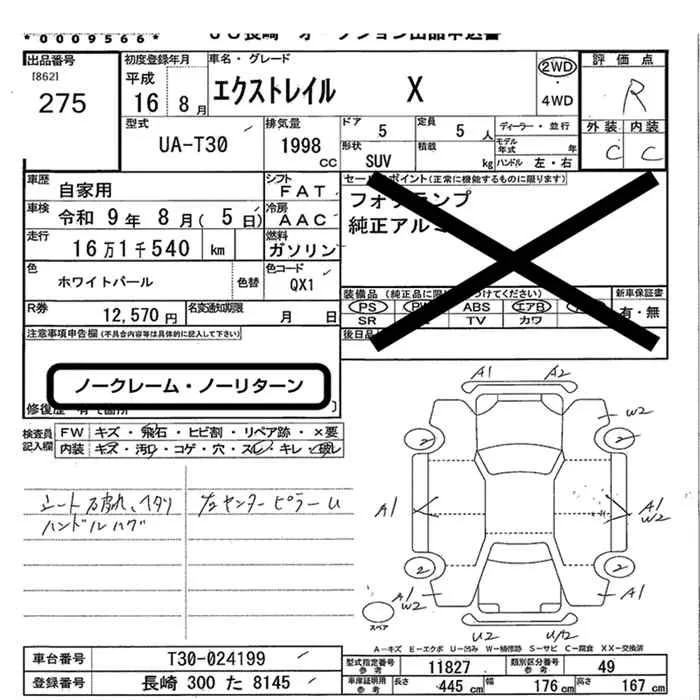 *0009566*
JU長崎 オークション出品申込書
出品番号
[862]
275
初度登録年月
平成
16 8月
車名・グレード
エクストレイル X
2WD
・
4WD
評価点
R
外装 内装
C C
型式
UA-T30
排気量
1998
CC
ドア
5
定員
5 人
形状
SUV
積載
kg
ディーラー・並行
モデル
年式
年
ハンドル 左・右
車歴
自家用
シフト
FAT
車検
令和 9年 8月( 5日)
冷房
AAC
走行
16万1千540 km
燃料
ガソリン
色
ホワイトパール
色替
色コード
QX1
R券
12,570円
名変通知期限
月 日
セールスポイント(正常に機能するものに限ります)
フォグランプ
純正アルミ
装備品
PS
ABS
エアB
SR
TV
カワ
新車保証書
有・無
注意事項申告欄(不具合内容等は具体的に記入して下さい)
ノークレーム・ノーリターン
検査員
記入欄
FW キズ・飛石・ヒビ割・リペア跡・×要
内装 キズ・汚れ・コゲ・穴・スレ・キレ・破レ
シート破れ、ヘタリ
ハンドルハゲ
左センターピラーU
A1 A2
W2
2 2
A1
A1
W2
2 2
A1
W2
A1
スペア
U2 U/A2
A-キズ E-エクボ U-凹み W-補修跡 S-サビ C-腐食 XX-交換済
車台番号
T30-024199
登録番号
長崎 300 た 8145
型式指定番号
参考
11827
類別区分番号
参考
49
車庫証明用
参考
長さ
445 cm
幅
176 cm
高さ
167 cm